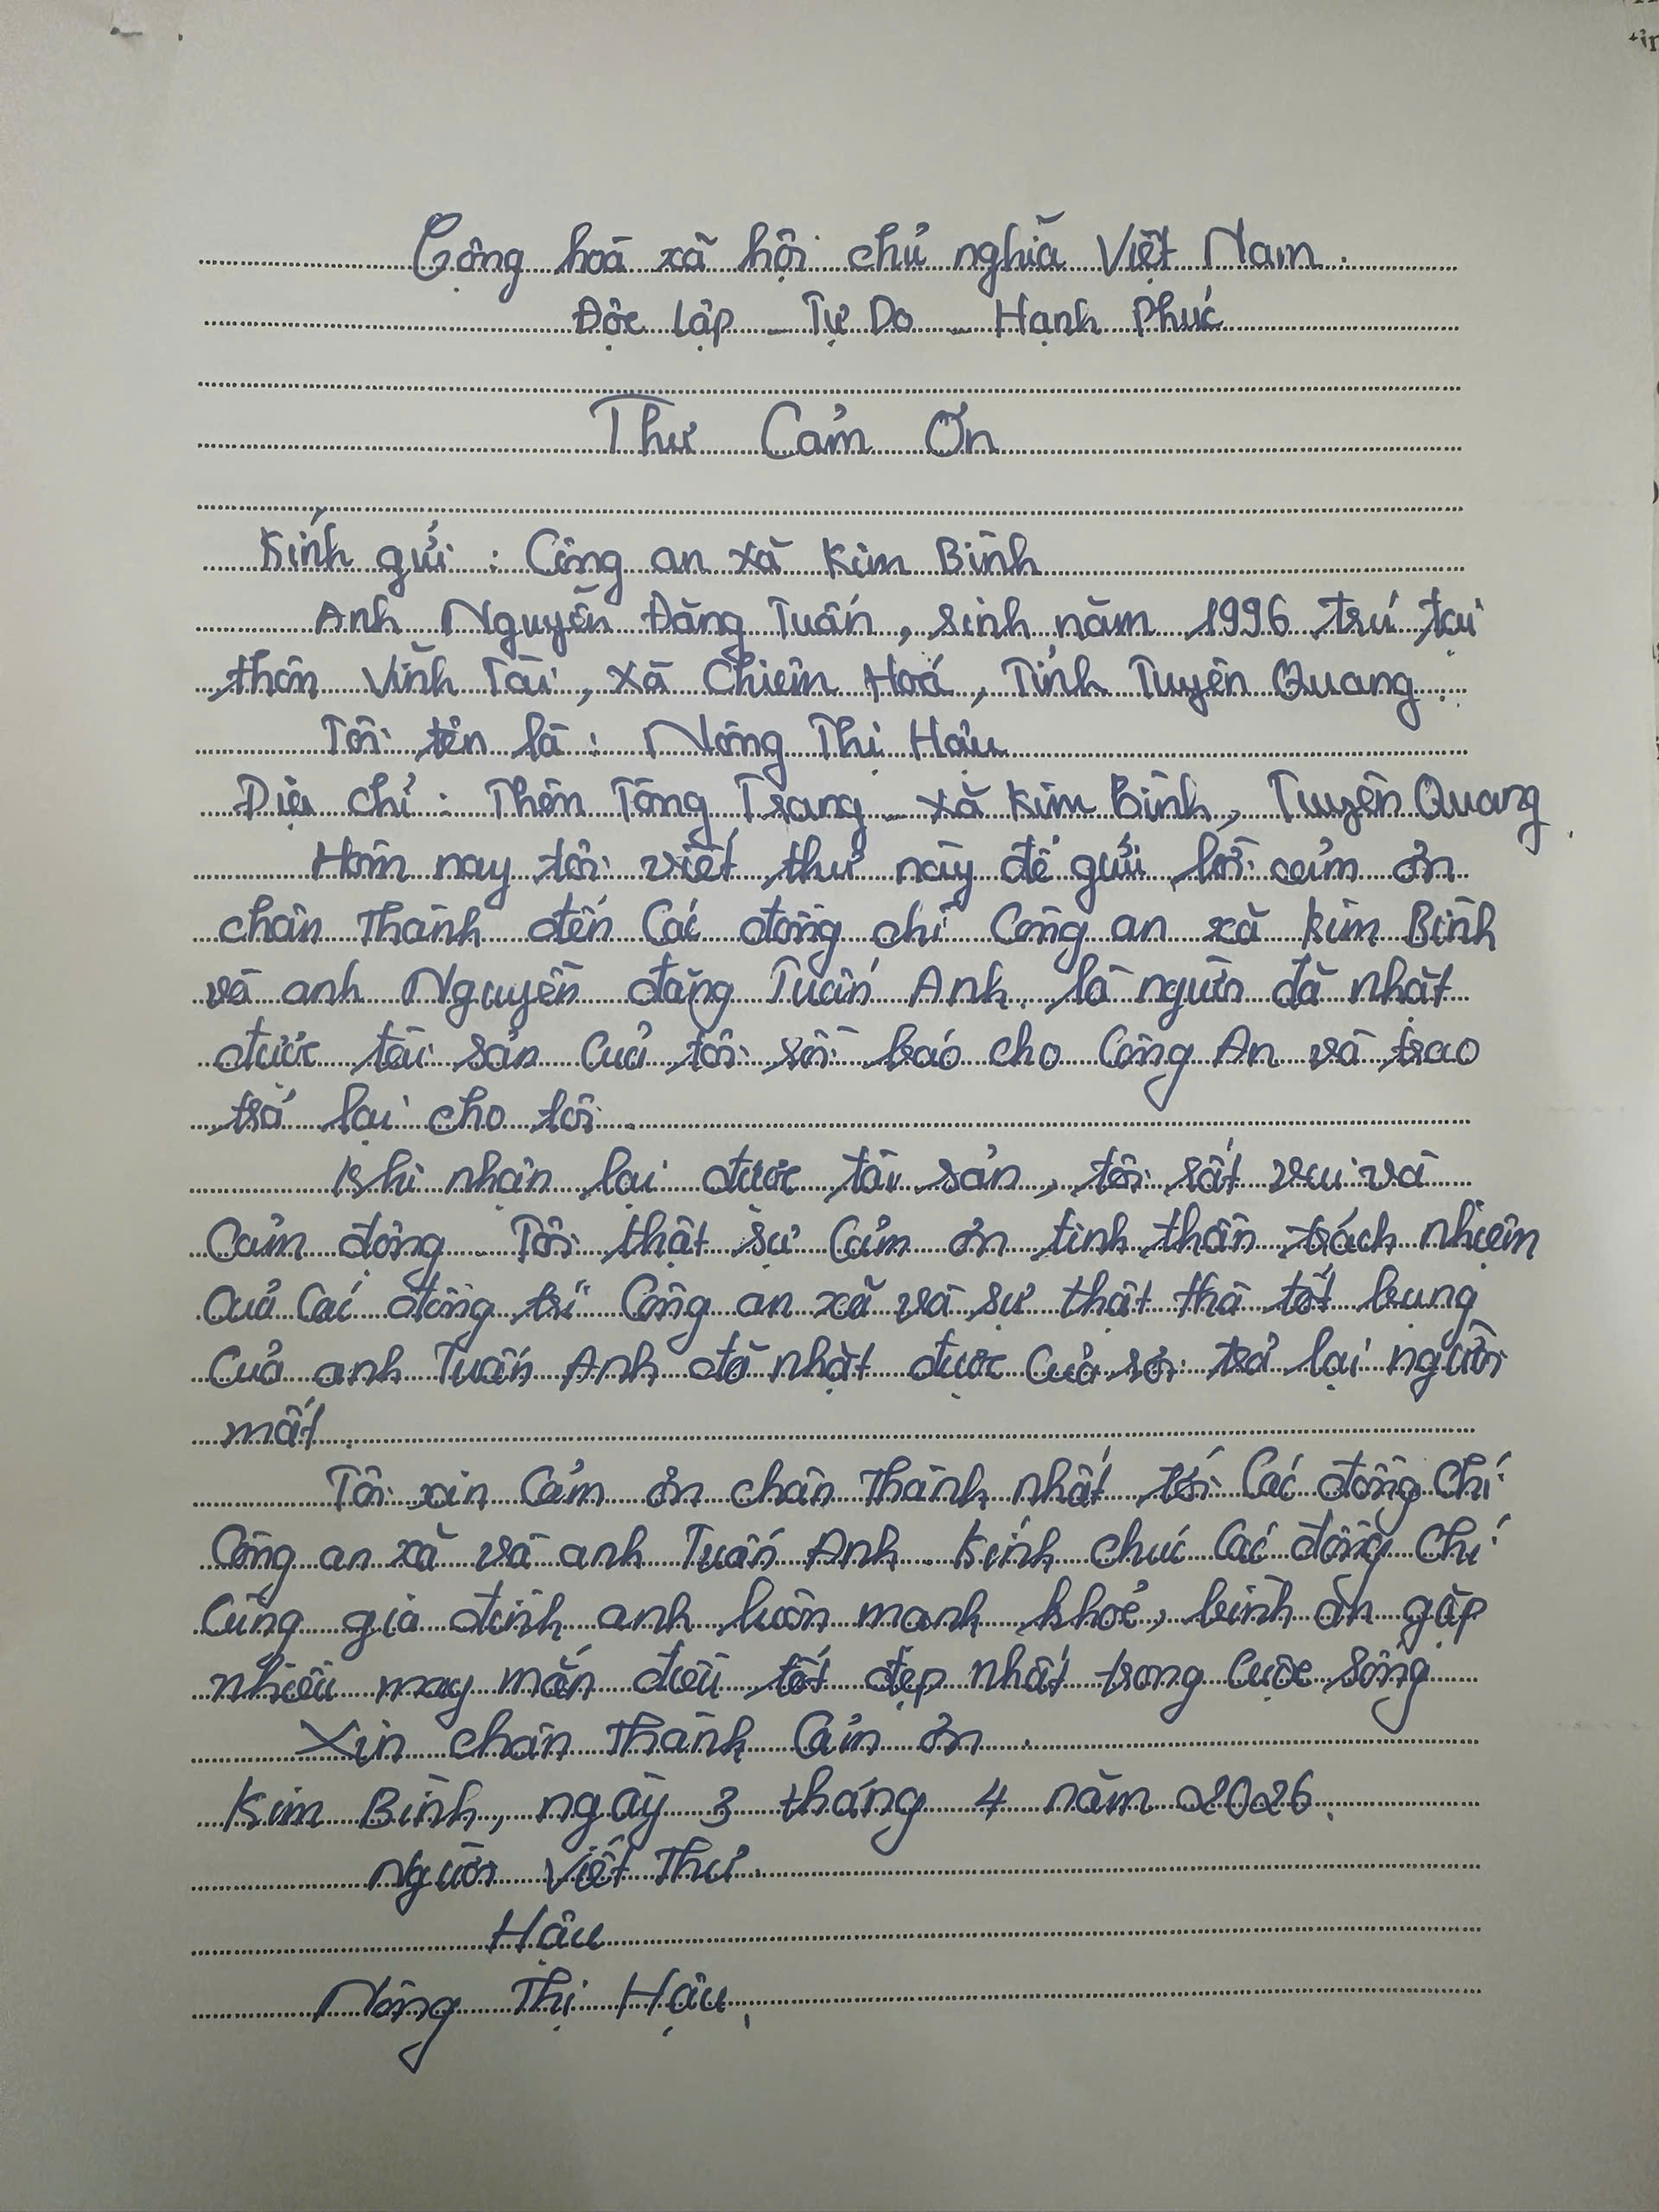 Cộng hoà xã hội chủ nghĩa Việt Nam.
Độc lập - Tự Do - Hạnh Phúc
Thư Cảm Ơn
Kính gửi : Công an xã Kim Bình
Anh Nguyễn Đăng Tuấn, sinh năm 1996 trú tại
thôn Vĩnh Tài, xã Chiêm Hoá, Tỉnh Tuyên Quang.
Tôi tên là : Nông Thị Hậu
Địa chỉ : Thôn Tông Trang - xã Kim Bình, Tuyên Quang.
Hôm nay tôi viết thư này để gửi lời cảm ơn
chân Thành đến Các đồng chí Công an xã Kim Bình
và anh Nguyễn đăng Tuấn Anh. là người đã nhặt
được tài sản Của tôi rồi báo cho Công An và trao
trả lại cho tôi.
Khi nhận lại được tài sản, tôi rất vui và
Cảm động. Tôi thật sự Cảm ơn tinh thần trách nhiệm
Của Các đồng trí Công an xã và sự thật thà tốt bụng
Của anh Tuấn Anh đã nhặt được Của rơi trả lại người
mất.
Tôi xin Cảm ơn chân Thành nhất tới Các đồng Chí
Công an xã và anh Tuấn Anh. Kính chúc Các đồng Chí
Cùng gia đình anh luôn mạnh khoẻ, bình an gặp
nhiều may mắn điều tốt đẹp nhất trong Cuộc sống
Xin chân Thành Cảm ơn.
Kim Bình, ngày 3 tháng 4 năm 2026.
người Viết Thư.
Hậu
Nông Thị Hậu.